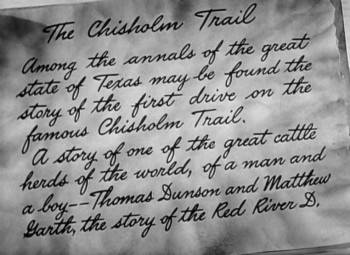 The Chisholm Trail
Among the annals of the great
state of Texas may be found the
story of the first drive on the
famous Chisholm Trail.
A story of one of the great cattle
herds of the world, of a man and
a boy--Thomas Dunson and Matthew
Garth, the story of the Red River D.